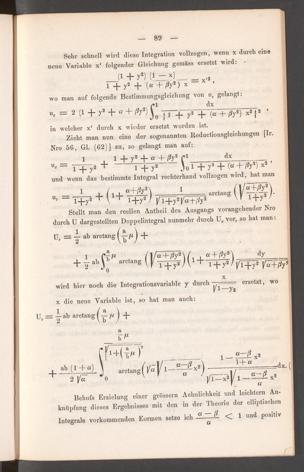 — 89 —
Sehr schnell wird diese Integration vollzogen, wenn x durch eine
neue Variable x' folgender Gleichung gemäss ersetzt wird:
(1 + y²) (1 — x) / 1 + y² + (α + βy²) x = x'²,
wo man auf folgende Bestimmungsgleichung von u, gelangt:
in welcher x' durch x wieder ersetzt worden ist.
Zieht man nun eine der sogenannten Reductionsgleichungen {Ir.
Nro 56, Gl. (62)} zu, so gelangt man auf:
und wenn das bestimmte Integral rechterhand vollzogen wird, hat man
Stellt man den reellen Antheil des Ausgangs vorangehender Nro
durch U dargestellten Doppelintegral nunmehr durch Uᵣ vor, so hat man:
Uᵣ = 1/2 ab arctang (a/b μ) +
wird hier noch die Integrationsvariable y durch x/√1—x² ersetzt, wo
x die neue Variable ist, so hat man auch:
Uᵣ = 1/2 ab arctang (a/b μ) +
Behufs Erzielung einer grössern Aehnlichkeit und leichtern An-
knüpfung dieses Ergebnisses mit den in der Theorie der elliptischen
Integrale vorkommenden Formen setze ich α — β / α < 1 und positiv